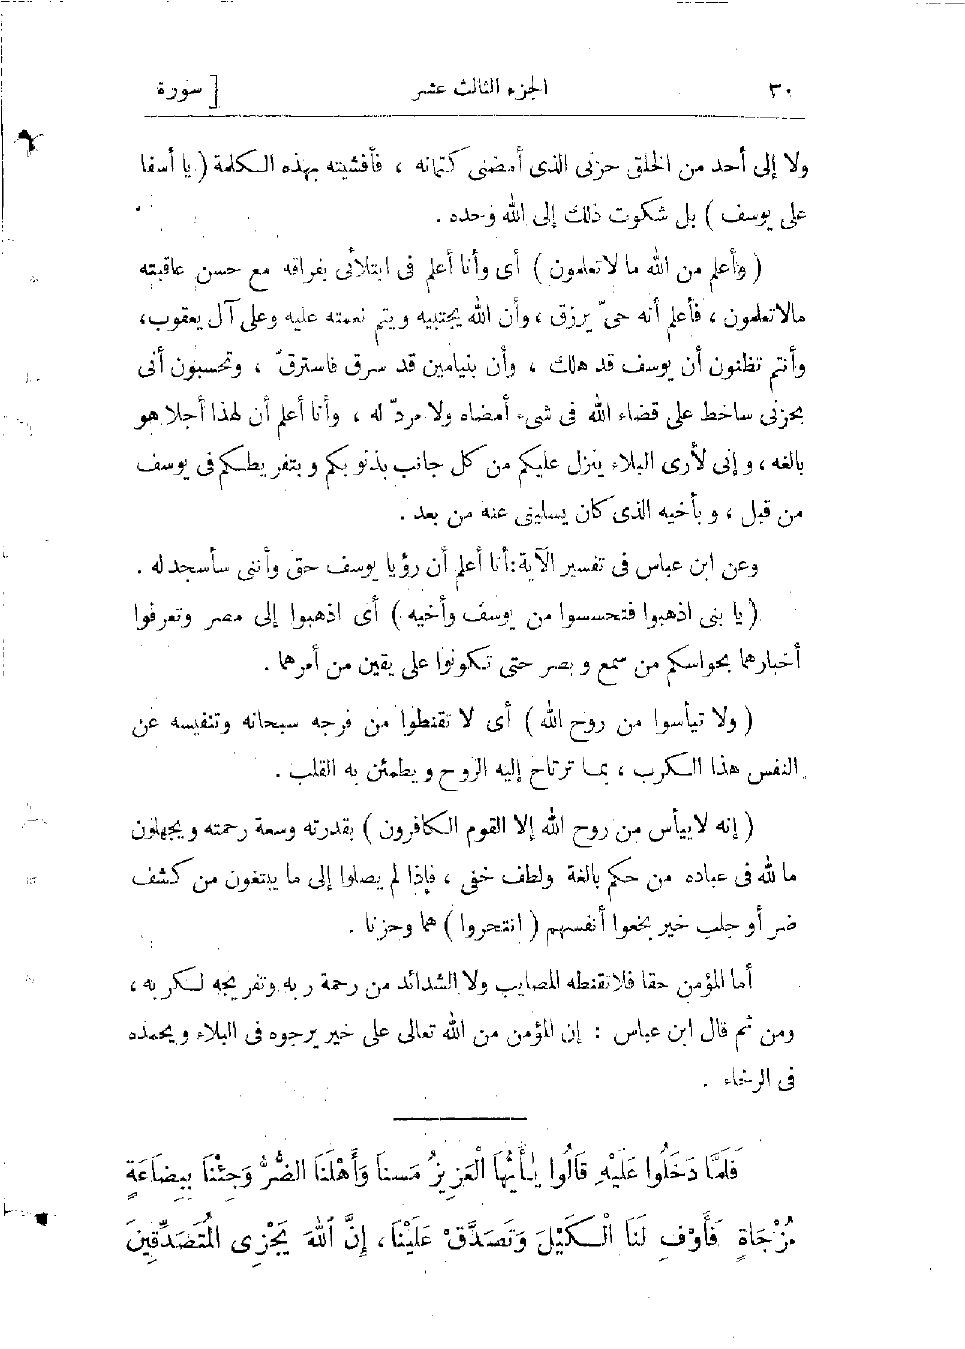 ٣٠ الجزء الثالث عشر [ سورة
ولا إلى أحد من الخلق حزنى الذى أمضنى كتمانه ، فأفشيته بهذه الكلمة ( يا أسفا
على يوسف ) بل شكوت ذلك إلى الله وحده .
( وأعلم من الله ما لا تعلمون ) أى وأنا أعلم فى ابتلائى بفراقه مع حسن عاقبته
مالا تعلمون ، فأعلم أنه حىّ يرزق ، وأن الله يجتبيه ويتم نعمته عليه وعلى آل يعقوب ،
وأنتم تظنون أن يوسف قد هلك ، وأن بنيامين قد سرق فاسترقّ ، وتحسبون أنى
بحزنى ساخط على قضاء الله فى شىء أمضاه ولا مردّ له ، وأنا أعلم أن لهذا أجلا هو
بالغه ، وإنى لأرى البلاء ينزل عليكم من كل جانب بذنوبكم وبتفريطكم فى يوسف
من قبل ، وبأخيه الذى كان يسلينى عنه من بعد .
وعن ابن عباس فى تفسير الآية : أنا أعلم أن رؤيا يوسف حق وأننى سأسجد له .
( يا بنى اذهبوا فتحسسوا من يوسف وأخيه ) أى اذهبوا إلى مصر وتعرفوا
أخبارهما بحواسكم من سمع وبصر حتى تكونوا على يقين من أمرهما .
( ولا تيأسوا من روح الله ) أى لا تقنطوا من فرجه سبحانه وتنفيسه عن
النفس هذا الكرب ، بما ترتاح إليه الروح ويطمئن به القلب .
( إنه لا ييأس من روح الله إلا القوم الكافرون ) بقدرته وسعة رحمته ويجهلون
ما لله فى عباده من حكم بالغة ولطف خفى ، فإذا لم يصلوا إلى ما يبتغون من كشف
ضر أو جلب خير بخعوا أنفسهم ( انتحروا ) هما وحزنا .
أما المؤمن حقا فلا تقنطه المصايب ولا الشدائد من رحمة ربه وتفريجه لكربه ،
ومن ثم قال ابن عباس : إن المؤمن من الله تعالى على خير يرجوه فى البلاء ويحمده
فى الرخاء .
فَلَمَّا دَخَلُوا عَلَيْهِ قَالُوا يٰأَيُّهَا الْعَزِيزُ مَسنَا وَأَهْلَنَا الضُّرُّ وَجِئْنَا بِبِضَاعَةٍ
مُزْجَاةٍ فَأَوْفِ لَنَا الْكَيْلَ وَتَصَدَّقْ عَلَيْنَا ، إِنَّ اللهَ يَجْزِى الْمُتَصَدِّقِينَ